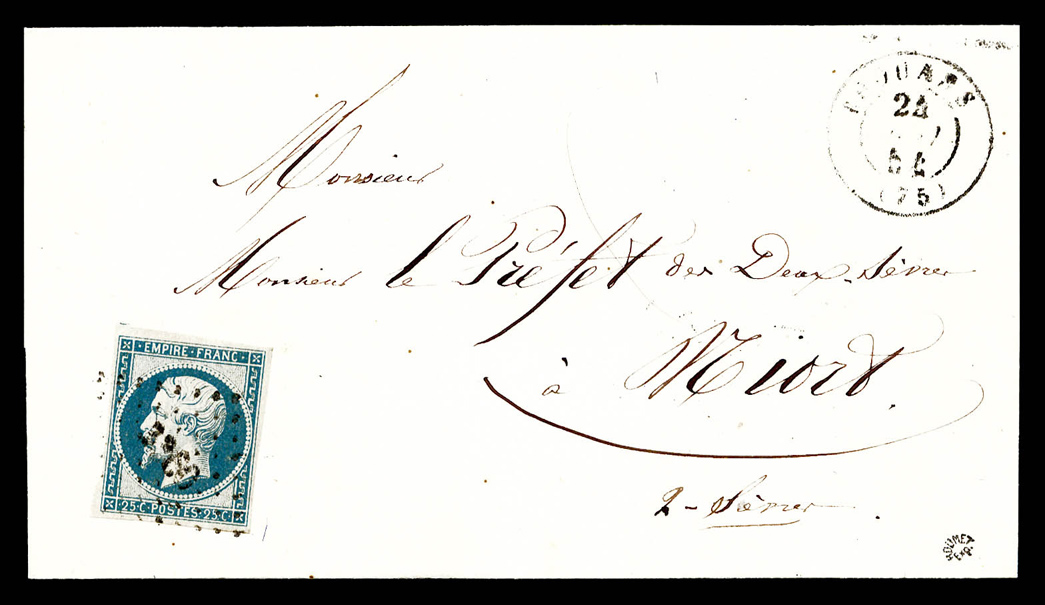 THOUARS
24
54
(75)
Monsieur
Monsieur le Préfet des Deux-Sèvres
à Niort.
2-Sèvres.
EMPIRE·FRANC·
25·C·POSTES·25·C
ROUMET
EXP.